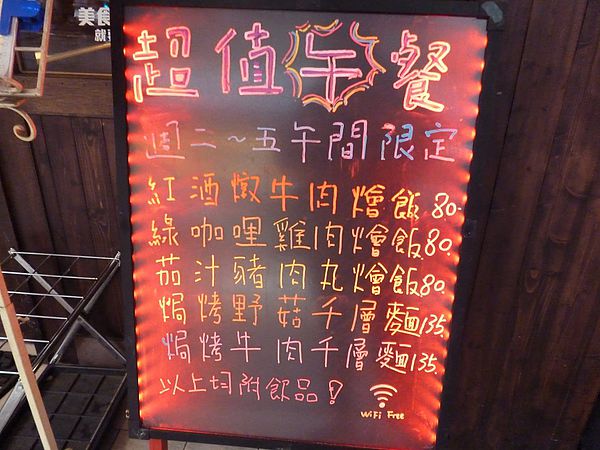 美食
超值午餐
週二～五午間限定
紅酒燉牛肉燴飯80.
綠咖哩雞肉燴飯80.
茄汁豬肉丸燴飯80.
焗烤野菇千層麵135.
焗烤牛肉千層麵135.
以上均附飲品！
WiFi Free